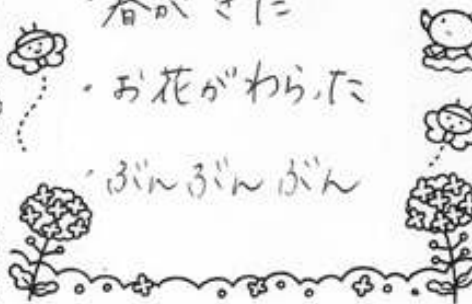 ・春がきた
・お花がわらった
・ぶんぶんぶん